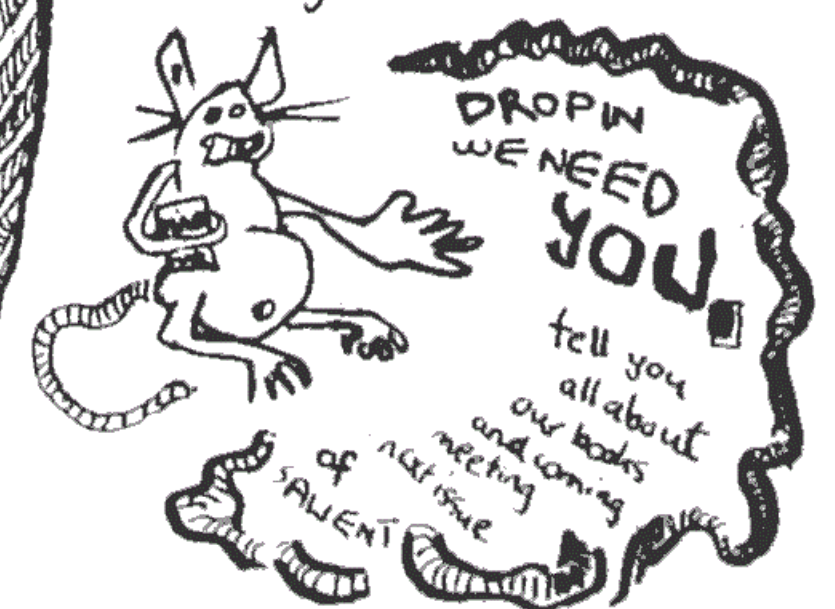 DROP IN
WE NEED
YOU.
tell you
all about
our books
and coming
meeting
next issue
of
SALIENT